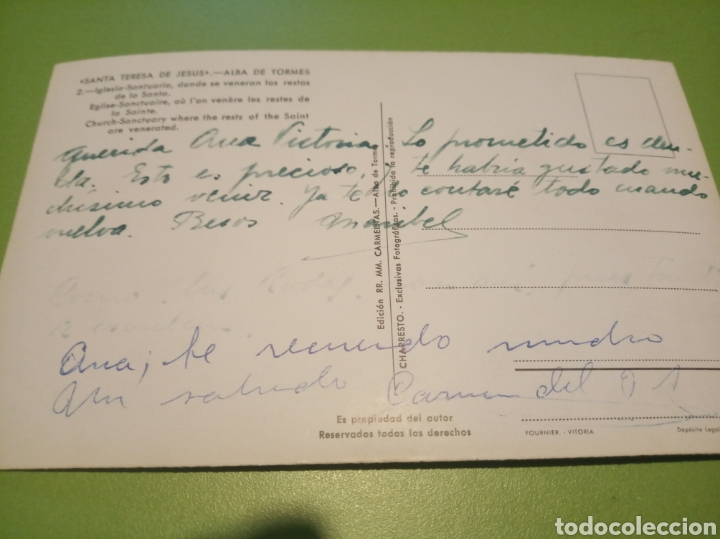 «SANTA TERESA DE JESUS».—ALBA DE TORMES
2.—Iglesia-Santuario, donde se veneran los restos
de la Santa.
Eglise-Sanctuaire, où l'on venère les restes de
la Sainte.
Church-Sanctuary where the rests of the Saint
are venerated.
Querida Ana Victoria: Lo prometido es deu-
da. Esto es precioso, te habría gustado mu-
chísimo venir. Ya te lo contaré todo cuando
vuelva. Besos Maribel
Ana; te recuerdo mucho
Un saludo Carmen del
Edición RR. MM. CARMELITAS.—Alba de Tormes
CHAPRESTO. - Exclusivas Fotográficas. - Prohibida la reproducción
Es propiedad del autor
Reservados todos los derechos
FOURNIER. - VITORIA
Depósito Legal
todocoleccion